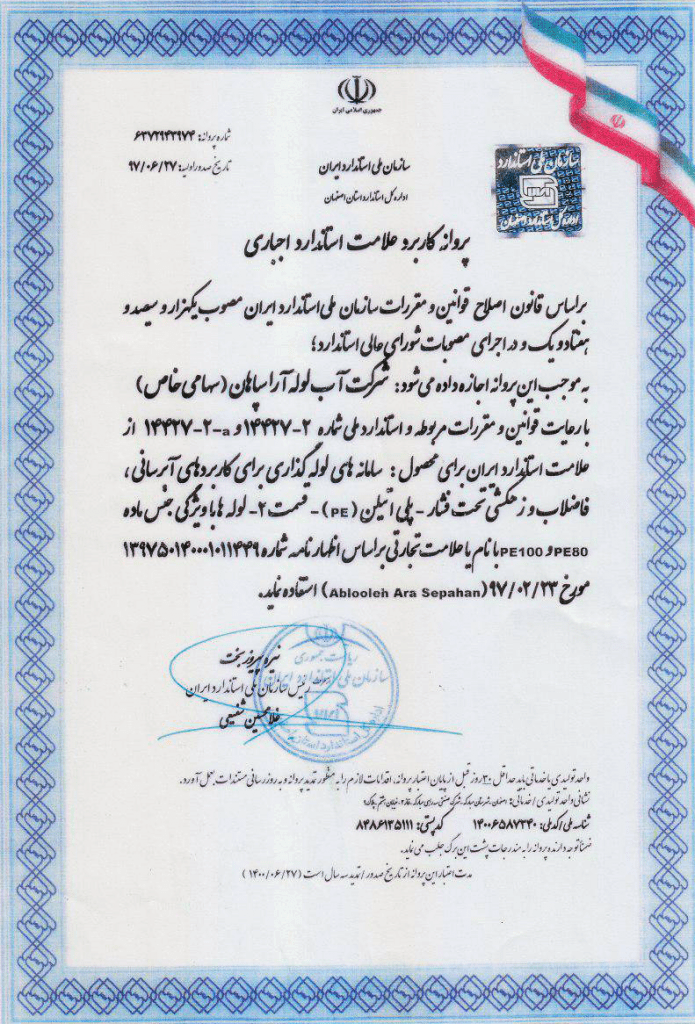 جمهوری اسلامی ایران
شماره پروانه: ۶۳۷۲۹۴۳۹۷۴
تاریخ صدور اولیه: ۹۷/۰۶/۲۷
سازمان ملی استاندارد ایران
اداره کل استاندارد استان اصفهان
سازمان ملی استاندارد
اداره کل استاندارد اصفهان
پروانه کاربرد علامت استاندارد اجباری
براساس قانون اصلاح قوانین و مقررات سازمان ملی استاندارد ایران مصوب یکهزار و سیصد و
هفتاد و یک و در اجرای مصوبات شورای عالی استاندارد؛
به موجب این پروانه اجازه داده می شود: شرکت آب لوله آرا سپاهان (سهامی خاص)
با رعایت قوانین و مقررات مربوطه و استاندارد ملی شماره ۲-۱۴۴۲۷ و a-۲-۱۴۴۲۷ از
علامت استاندارد ایران برای محصول: سامانه های لوله گذاری برای کاربردهای آبرسانی،
فاضلاب و زهکشی تحت فشار - پلی اتیلن (PE) - قسمت ۲- لوله ها با ویژگی جنس ماده
PE80 و PE100 با نام یا علامت تجارتی بر اساس اظهار نامه شماره ۱۳۹۷۵۰۱۴۰۰۰۱۰۱۱۴۴۹
مورخ ۹۷/۰۲/۲۳ (Ablooleh Ara Sepahan) استفاده نماید.
نیره پیروزبخت
رئیس سازمان ملی استاندارد ایران
غلامحسین شفیعی
ریاست جمهوری
سازمان ملی استاندارد ایران
واحد تولیدی یا خدماتی باید حداقل ۳۰ روز قبل از پایان اعتبار پروانه، اقدامات لازم را به منظور تمدید پروانه و به روز رسانی مستندات بعمل آورد.
نشانی واحد تولیدی / خدماتی: اصفهان، شهرستان مبارکه، شهرک صنعتی
شناسه ملی/کد ملی: ۱۴۰۰۶۵۸۷۳۴۰ کد پستی: ۸۴۸۶۱۳۵۱۱۱
ضمناً توجه دارنده پروانه را به مندرجات پشت این برگ جلب می نماید.
مدت اعتبار این پروانه از تاریخ صدور / تمدید سه سال است (۱۴۰۰/۰۶/۲۷)